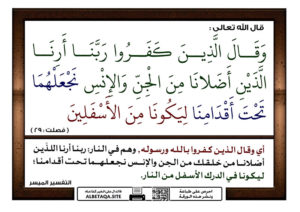 قال الله تعالى :
وَقَالَ الَّذِينَ كَفَرُوا رَبَّنَا أَرِنَا
الَّذَيْنِ أَضَلَّانَا مِنَ الْجِنِّ وَالْإِنْسِ نَجْعَلْهُمَا
تَحْتَ أَقْدَامِنَا لِيَكُونَا مِنَ الْأَسْفَلِينَ
( فصلت : ٢٩ )
أي وقال الذين كفروا بالله ورسوله, وهم في النار: ربنا أرنا اللذَين
أضلانا من خلقك من الجن والإنس نجعلهما تحت أقدامنا؛
ليكونا في الدرك الأسفل من النار.
التفسير الميسر
احرص على طباعة
ونشر هذه الورقة
ALBETAQA.SITE